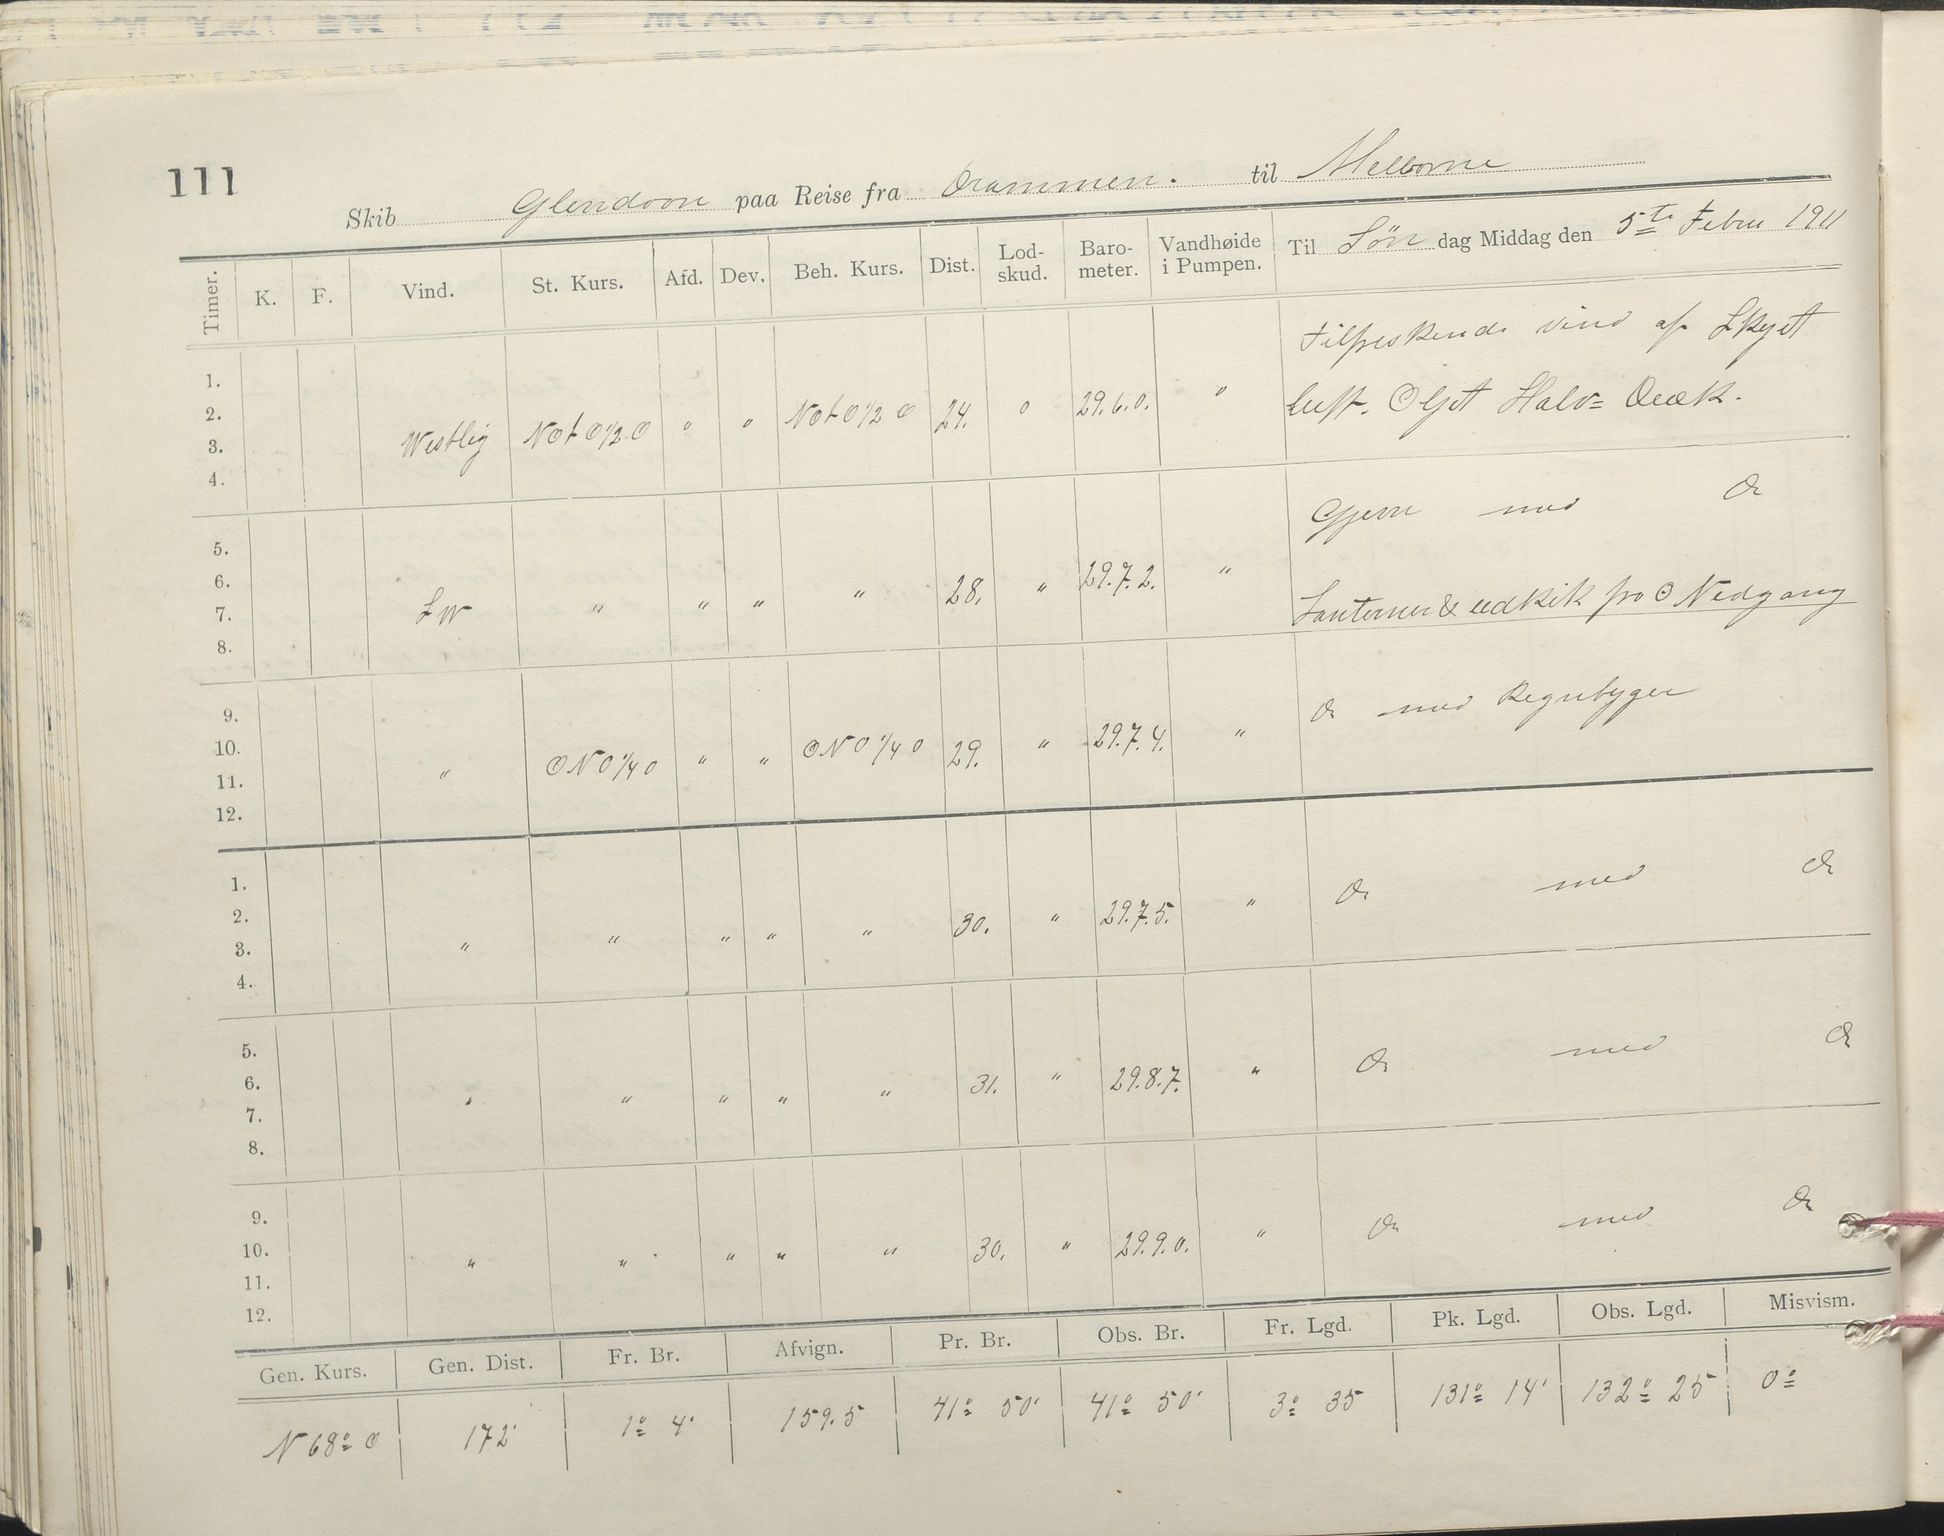 111
Skib Glendoon paa Reise fra Drammen. til Melborne
Timer. K. F. Vind. St. Kurs. Afd. Dev. Beh. Kurs. Dist. Lod-skud. Baro-meter. Vandhøide i Pumpen. Til Søn dag Middag den 5te Febru 1911
1.
2.
3.
4.
Westlig NOtO1/2O " " NOtO1/2O 24. " 29.6.0. "
Tilfreskende vind af Skyet
luft. Oljet Halv= Dæk.
5.
6.
7.
8.
SW " " " " 28. " 29.7.2. "
Gjevn med Do
Lanterner & udkik fra O Nedgang
9.
10.
11.
12.
" ONO 1/4 O " " ONO 1/4 O 29. " 29.7.4. "
Do med Regnbyger
1.
2.
3.
4.
" " " " " 30. " 29.7.5. "
Do med Do
5.
6.
7.
8.
" " " " " 31. " 29.8.7. "
Do med Do
9.
10.
11.
12.
" " " " " 30. " 29.9.0. "
Do med Do
Gen. Kurs. Gen. Dist. Fr. Br. Afvign. Pr. Br. Obs. Br. Fr. Lgd. Pk. Lgd. Obs. Lgd. Misvism.
N 68° O 172' 1° 4' 159.5 41° 50' 41° 50' 3° 35 131° 14' 132° 25 0°